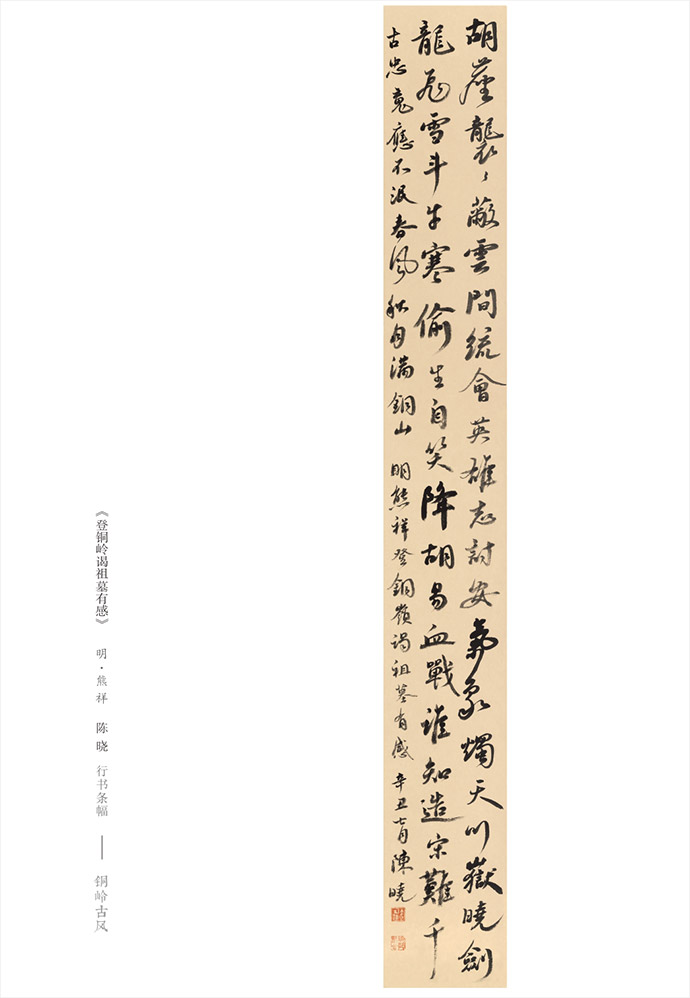 胡塵襲〻蔽雲間統會英雄志討安氣象燭天川嶽曉劍
龍飛雪斗牛寒偷生自笑降胡易血戰誰知造宋難千
古忠魂應不泯春風秋月滿銅山 明熊祥登銅嶺謁祖墓有感 辛丑七月陳曉
《登铜岭谒祖墓有感》 明·熊祥 陈晓 行书条幅 —— 铜岭古风